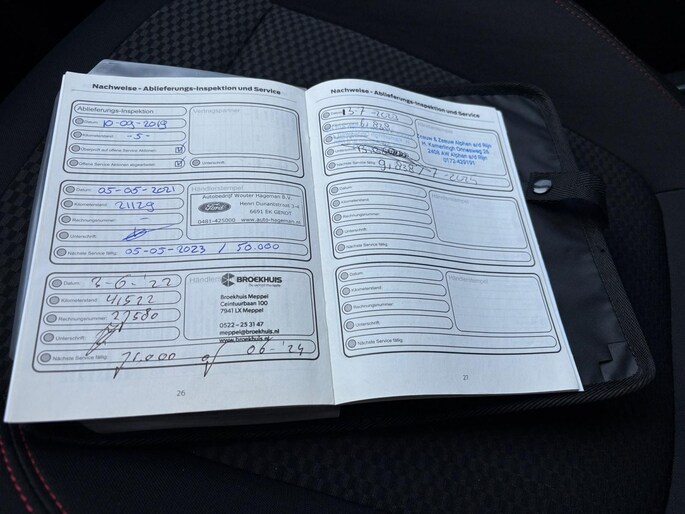 Nachweise - Ablieferungs-Inspektion und Service
Ablieferungs-Inspektion
Datum 10-09-2019
Kilometerstand -5-
Offene Service Aktionen abgearbeitet
Unterschrift
26
Händlerstempel
Datum 05-05-2021
Kilometerstand 21129
Rechnungsnummer -
Unterschrift
Nächste Service fällig 05-05-2023 / 50.000
Autobedrijf Wouter Hageman B.V.
Ford
Henri Dunantstraat 3-4
6691 EK GENDT
0481-425000 www.auto-hageman.nl
Datum 3-6-'22
Kilometerstand 41522
Rechnungsnummer 27580
Unterschrift
Nächste Service fällig 71.000 of 06-'24
BROEKHUIS
Broekhuis Meppel
Ceintuurbaan 100
7941 LX Meppel
0522 - 25 31 47
meppel@broekhuis.nl
www.broekhuis.nl
Nachweise - Ablieferungs-Inspektion und Service
H. Kamerlingh Onnesweg 26
2408 AW Alphen a/d Rijn
0172-429191
Nächste Service fällig
Datum
Kilometerstand
Rechnungsnummer
Unterschrift
Nächste Service fällig
Datum
Kilometerstand
Rechnungsnummer
Unterschrift
Nächste Service fällig
Händlerstempel